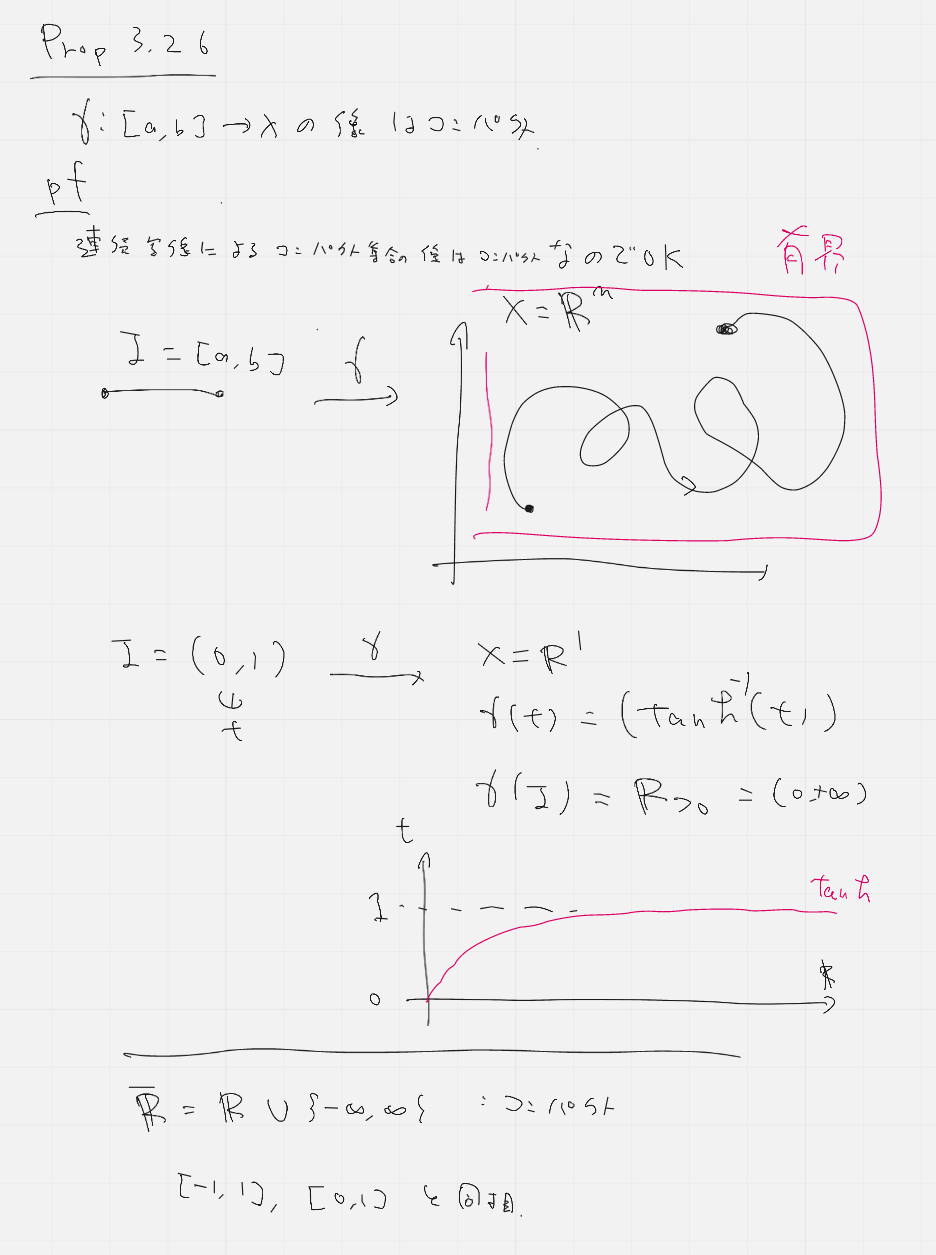 Prop 3.26
γ: [a,b] → X の像はコンパクト.
pf
連続写像によるコンパクト集合の像はコンパクトなのでOK
有界
X = ℝⁿ
I = [a,b] γ
I = (0,1) γ X = ℝ¹
∪
t
γ(t) = (tanh⁻¹(t))
γ(I) = ℝ>0 = (0,+∞)
t
tanh
1
ℝ
0
ℝ̅ = ℝ ∪ {-∞, ∞} : コンパクト
[-1, 1], [0,1] と同相.